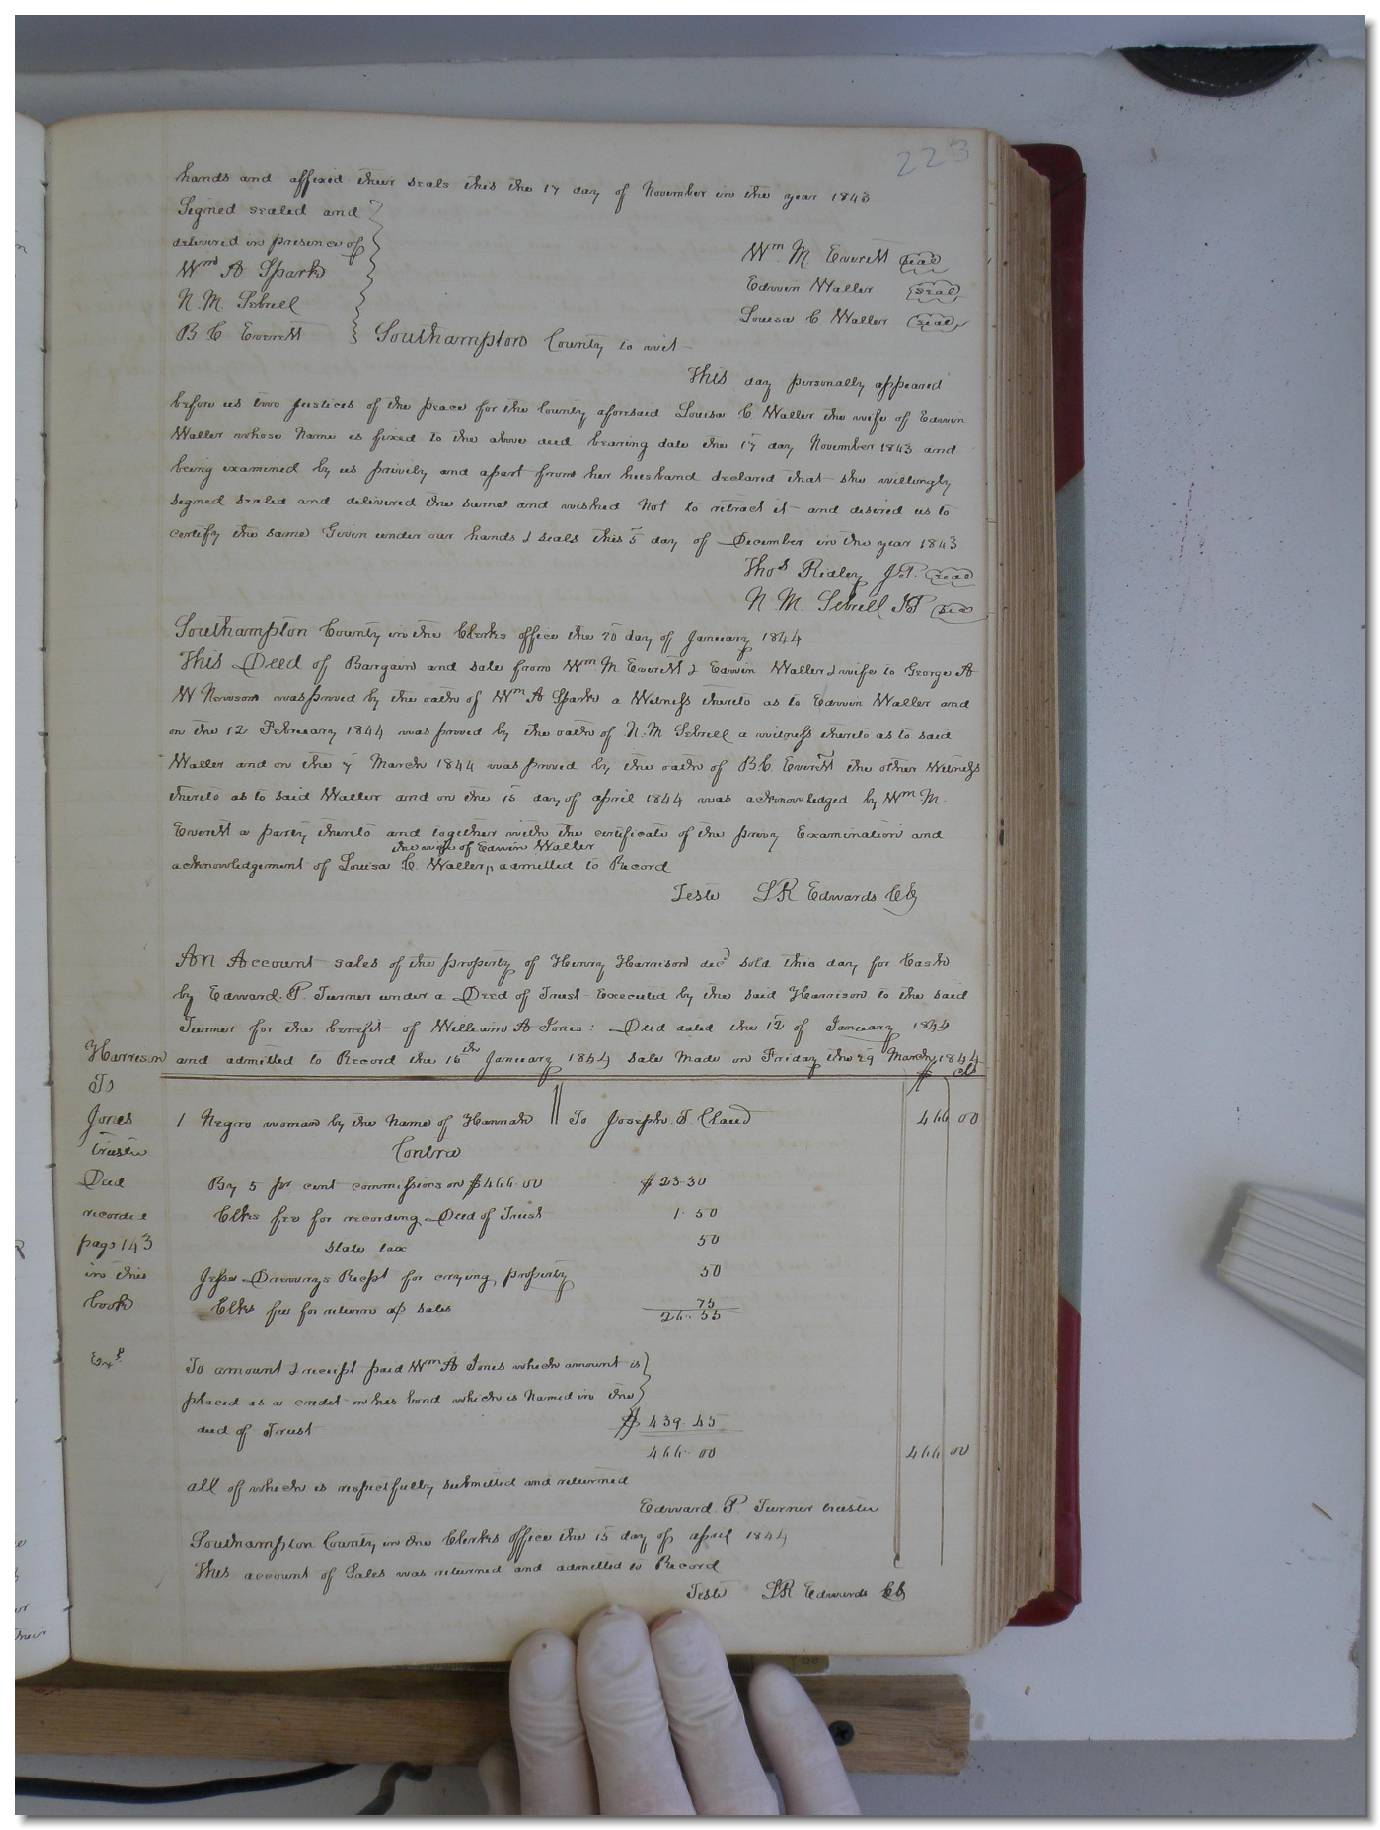 223
hands and affixed their seals this the 17 day of November in the year 1843
Signed sealed and
delivered in presence of
Wm A Spark
N. M. Sebrell
B C Everett
Wm. M. Everett seal
Edwin Waller seal
Louisa C. Waller seal
Southampton County to wit
This day personally appeared
before us two justices of the peace for the County aforesaid Louisa C Waller the wife of Edwin
Waller whose Name is fixed to the above deed bearing date the 17 day November 1843 and
being examined by us privily and apart from her husband declared that she willingly
signed sealed and delivered the same and wished Not to retract it and desired us to
certify the same Given under our hands & seals this 5 day of December in the year 1843
Thos Ridley J.P. seal
N. M. Sebrell JP seal
Southampton County in the Clerks office the 20 day of January 1844
This Deed of Bargain and sale from Wm. M Everett & Edwin Waller & wife to George A
W Newsom was proved by the oath of Wm A Spark a Witness thereto as to Edwin Waller and
on the 12 February 1844 was proved by the oath of N. M Sebrell a witness thereto as to said
Waller and on the 7 March 1844 was proved by the oath of B.C. Everett the other Witness
thereto as to said Waller and on the 15 day of april 1844 was acknowledged by Wm. M.
Everett a party thereto and together with the certificate of the privy Examination and
the wife of Edwin Waller
acknowledgement of Louisa C. Waller, admitted to Record
Teste LR Edwards Clk
An Account sales of the property of Henry Harrison decd sold this day for Cash
by Edward. P. Turner under a Deed of Trust Executed by the said Harrison to the said
Turner for the benefit of William A Jones: Deed dated the 12 of January 1844
and admitted to Record the 16th January 1844 sale Made on Friday the 29 March 1844
Harrison
To
Jones
trustee
Deed
recorded
page 143
in this
book
Exd
$ cts
1 Negro woman by the Name of Hannah || To Joseph. T. Claud 466 00
Contra
By 5 pr cent commissions on $466.00 $ 23.30
Clks fee for recording Deed of Trust 1.50
State tax 50
Jesse Drewrys Recpt for crying property 50
Clks fee for return of sales 75
26.55
To amount & receipt paid Wm A Jones which amount is
placed as a credit on his bond which is Named in the
deed of Trust $ 439.45
466.00 466 00
all of which is respectfully submitted and returned
Edward. P. Turner trustee
Southampton County in the Clerks office the 15 day of april 1844
This account of Sales was returned and admitted to Record
Teste LR Edwards Clk